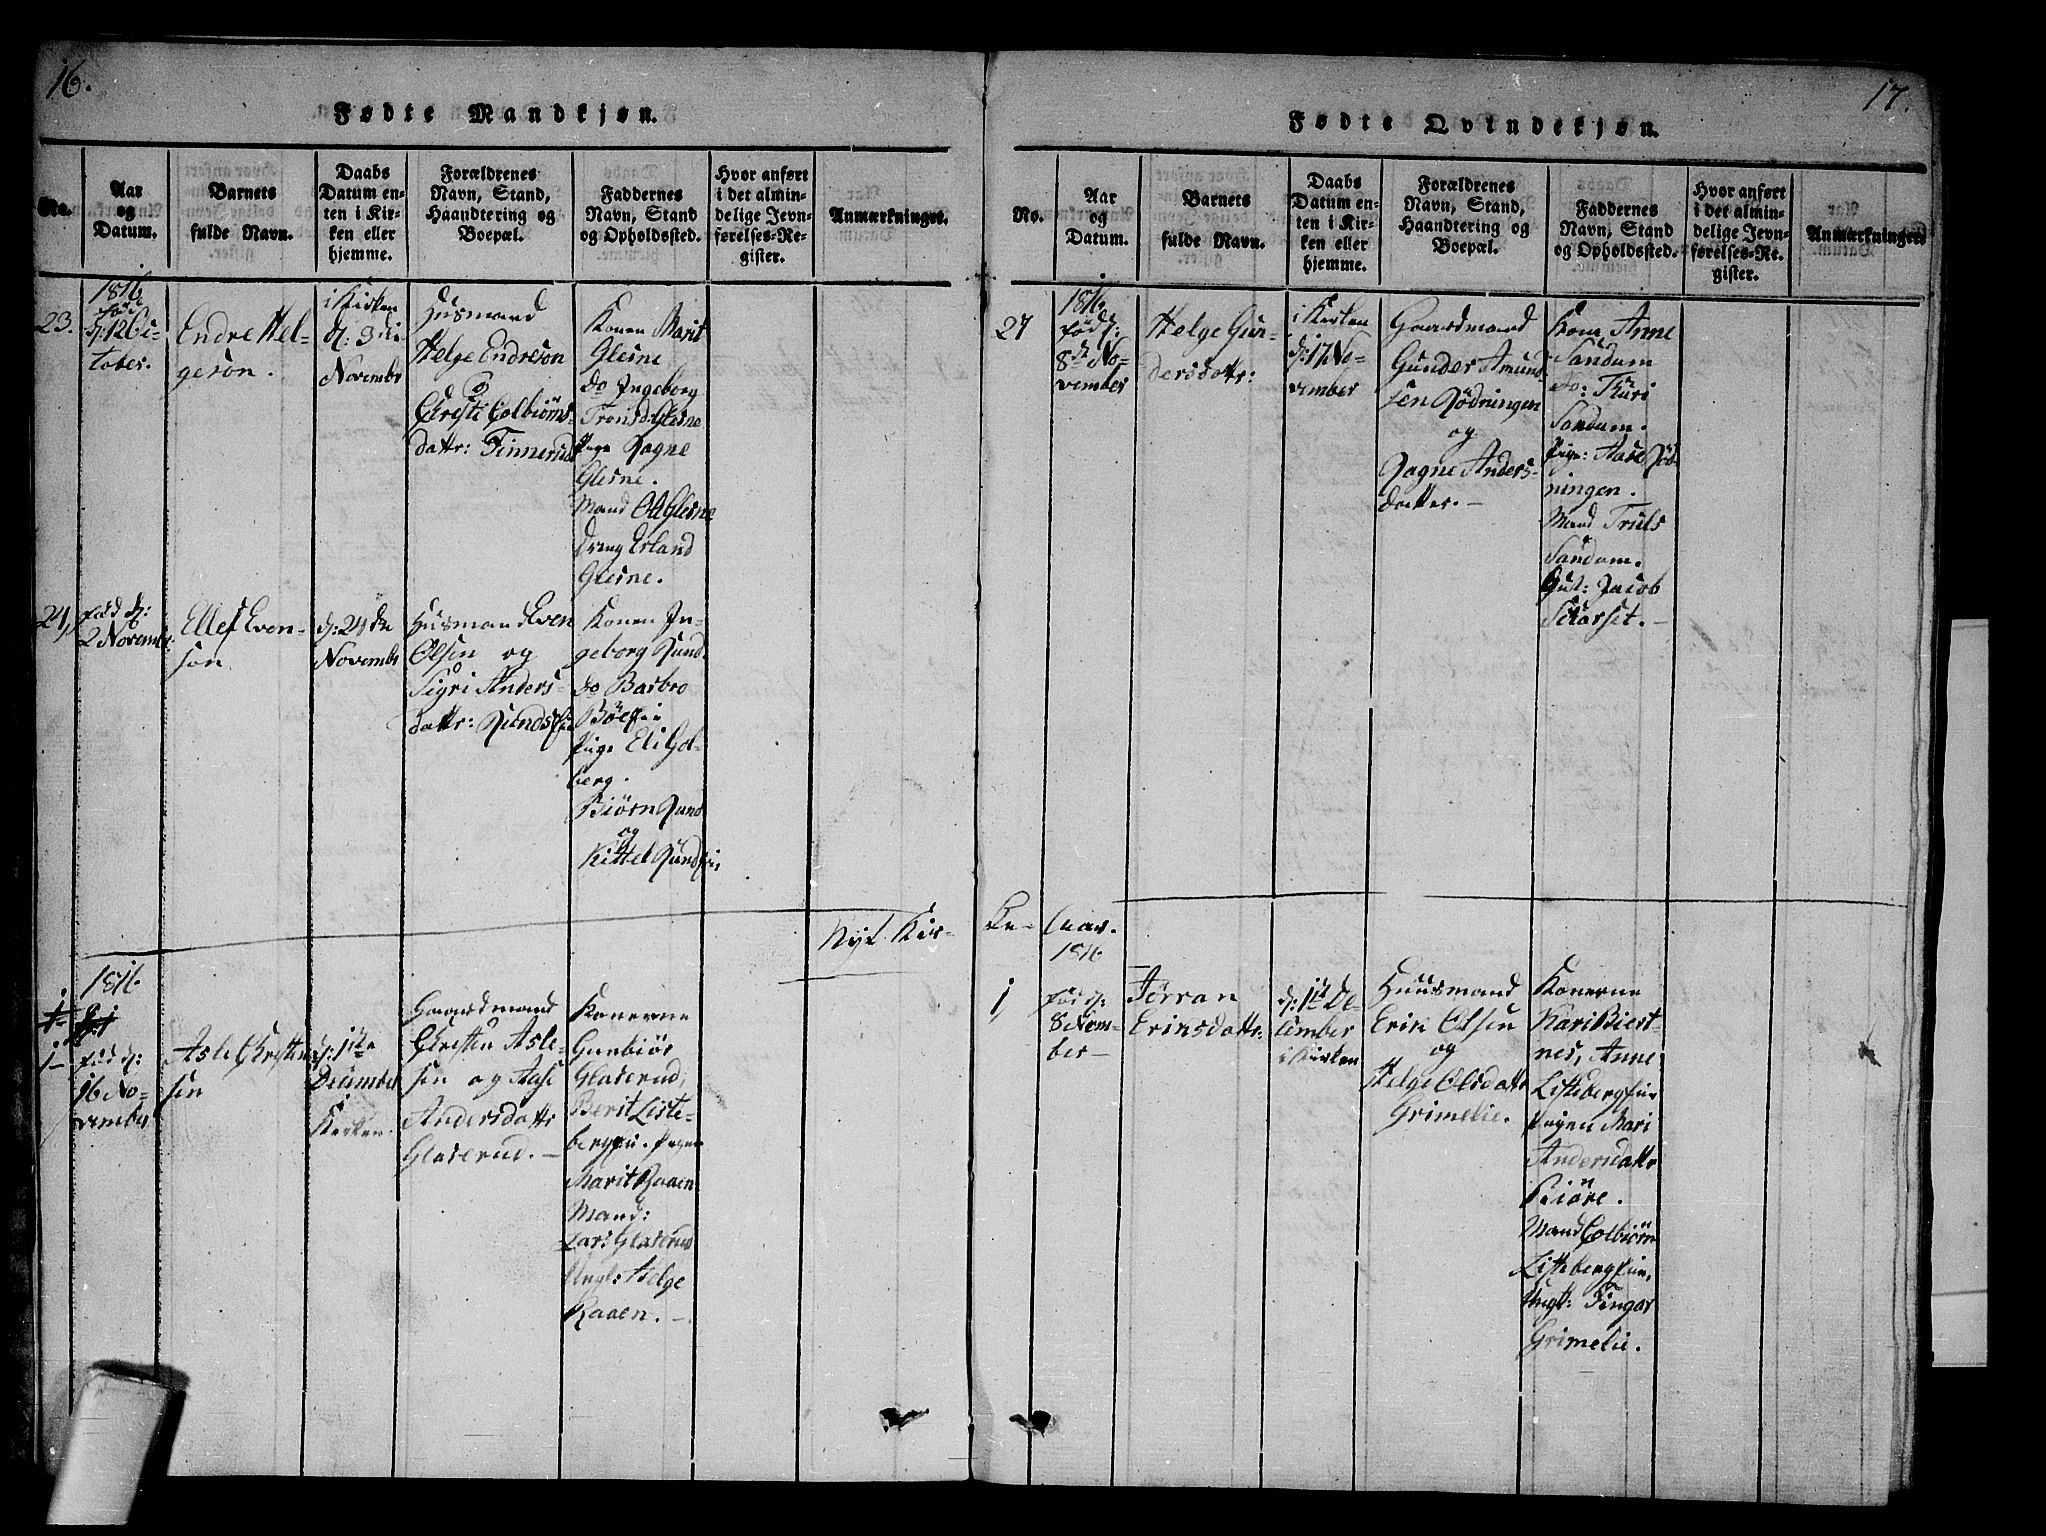 16.
Fødte Mandkjøn.
No.
Aar
og
Datum.
Barnets
fulde Navn.
Daabs
Datum en-
ten i Kir-
ken eller
hjemme.
Forældrenes
Navn, Stand,
Haandtering og
Boepæl.
Faddernes
Navn, Stand
og Opholdssted.
Hvor anført
i det almin-
delige Jevn-
førelses-Re-
gister.
Anmærkninger.
23.
1816
fød
d: 12 Oc-
tober.
Endre Hel-
geson.
i Kirken
d: 3
Novembr
Husmand
Helge Endreson
og
Christi Colbiørns-
dattr:
Konen Marit
Glesne
do Ingeborg
Glesne
Pige Ragne
Glesne.
Mand Ole Glesne
Dreng Erland
Glesne.
24,
fød d:
2 Novembr.
Ellef Even-
son
d: 24de
Novembr
Husmand Even
Olsen og
Sigri Anders-
dattr:
Konen In-
geborg Rund.
do Barbro
Pige Eli Gol-
berg.
Biørn Rund
og
Kittel
Nyt Kir-
1816
1
fød d:
16 No-
vember
Asle Christen
sen
d: 1ste
December
i
Kirken.
Gaardmand
Christen Asle-
sen og Aase
Andersdattr
Glaserud. —
Konerne
Gunbiør
Glaserud,
Berit Liste-
Marit Raaen
Mand:
Lars Glaserud
Ungk: Helge
Raaen. —
17.
Fødte Qvindekjøn.
No.
Aar
og
Datum.
Barnets
fulde Navn.
Daabs
Datum en-
ten i Kir-
ken eller
hjemme.
Forældrenes
Navn, Stand,
Haandtering og
Boepæl.
Faddernes
Navn, Stand
og Opholdssted.
Hvor anført
i det almin-
delige Jevn-
førelses-Re-
gister.
Anmærkninger
27
1816
fød d:
8de No-
vember
Helge Gun-
dersdattr:
i Kirken
d: 17 No-
vember
Gaardmand
Gunder Amund-
sen Rødningen
og
Ragne Anders-
datter. —
Kone Anne
Sandum
do: Thuri
Sandum.
Pige: Aase Rød-
ningen.
Mand Truls
Sandum.
Jacob
Skarset. —
ke- Aar.
1816
1
fød d:
8 Novem-
ber —
Jørran
Erinsdattr:
d: 1ste De-
cember
i Kirken
Huusmand
Erin Olsen
og
Helge Olsdattr
Grimelie.
Konerne
Kari Biert-
nes, Anne
Pigen Mari
Andersdattr
Mand Colbiørn
Ungk: Fingar
Grimelie.